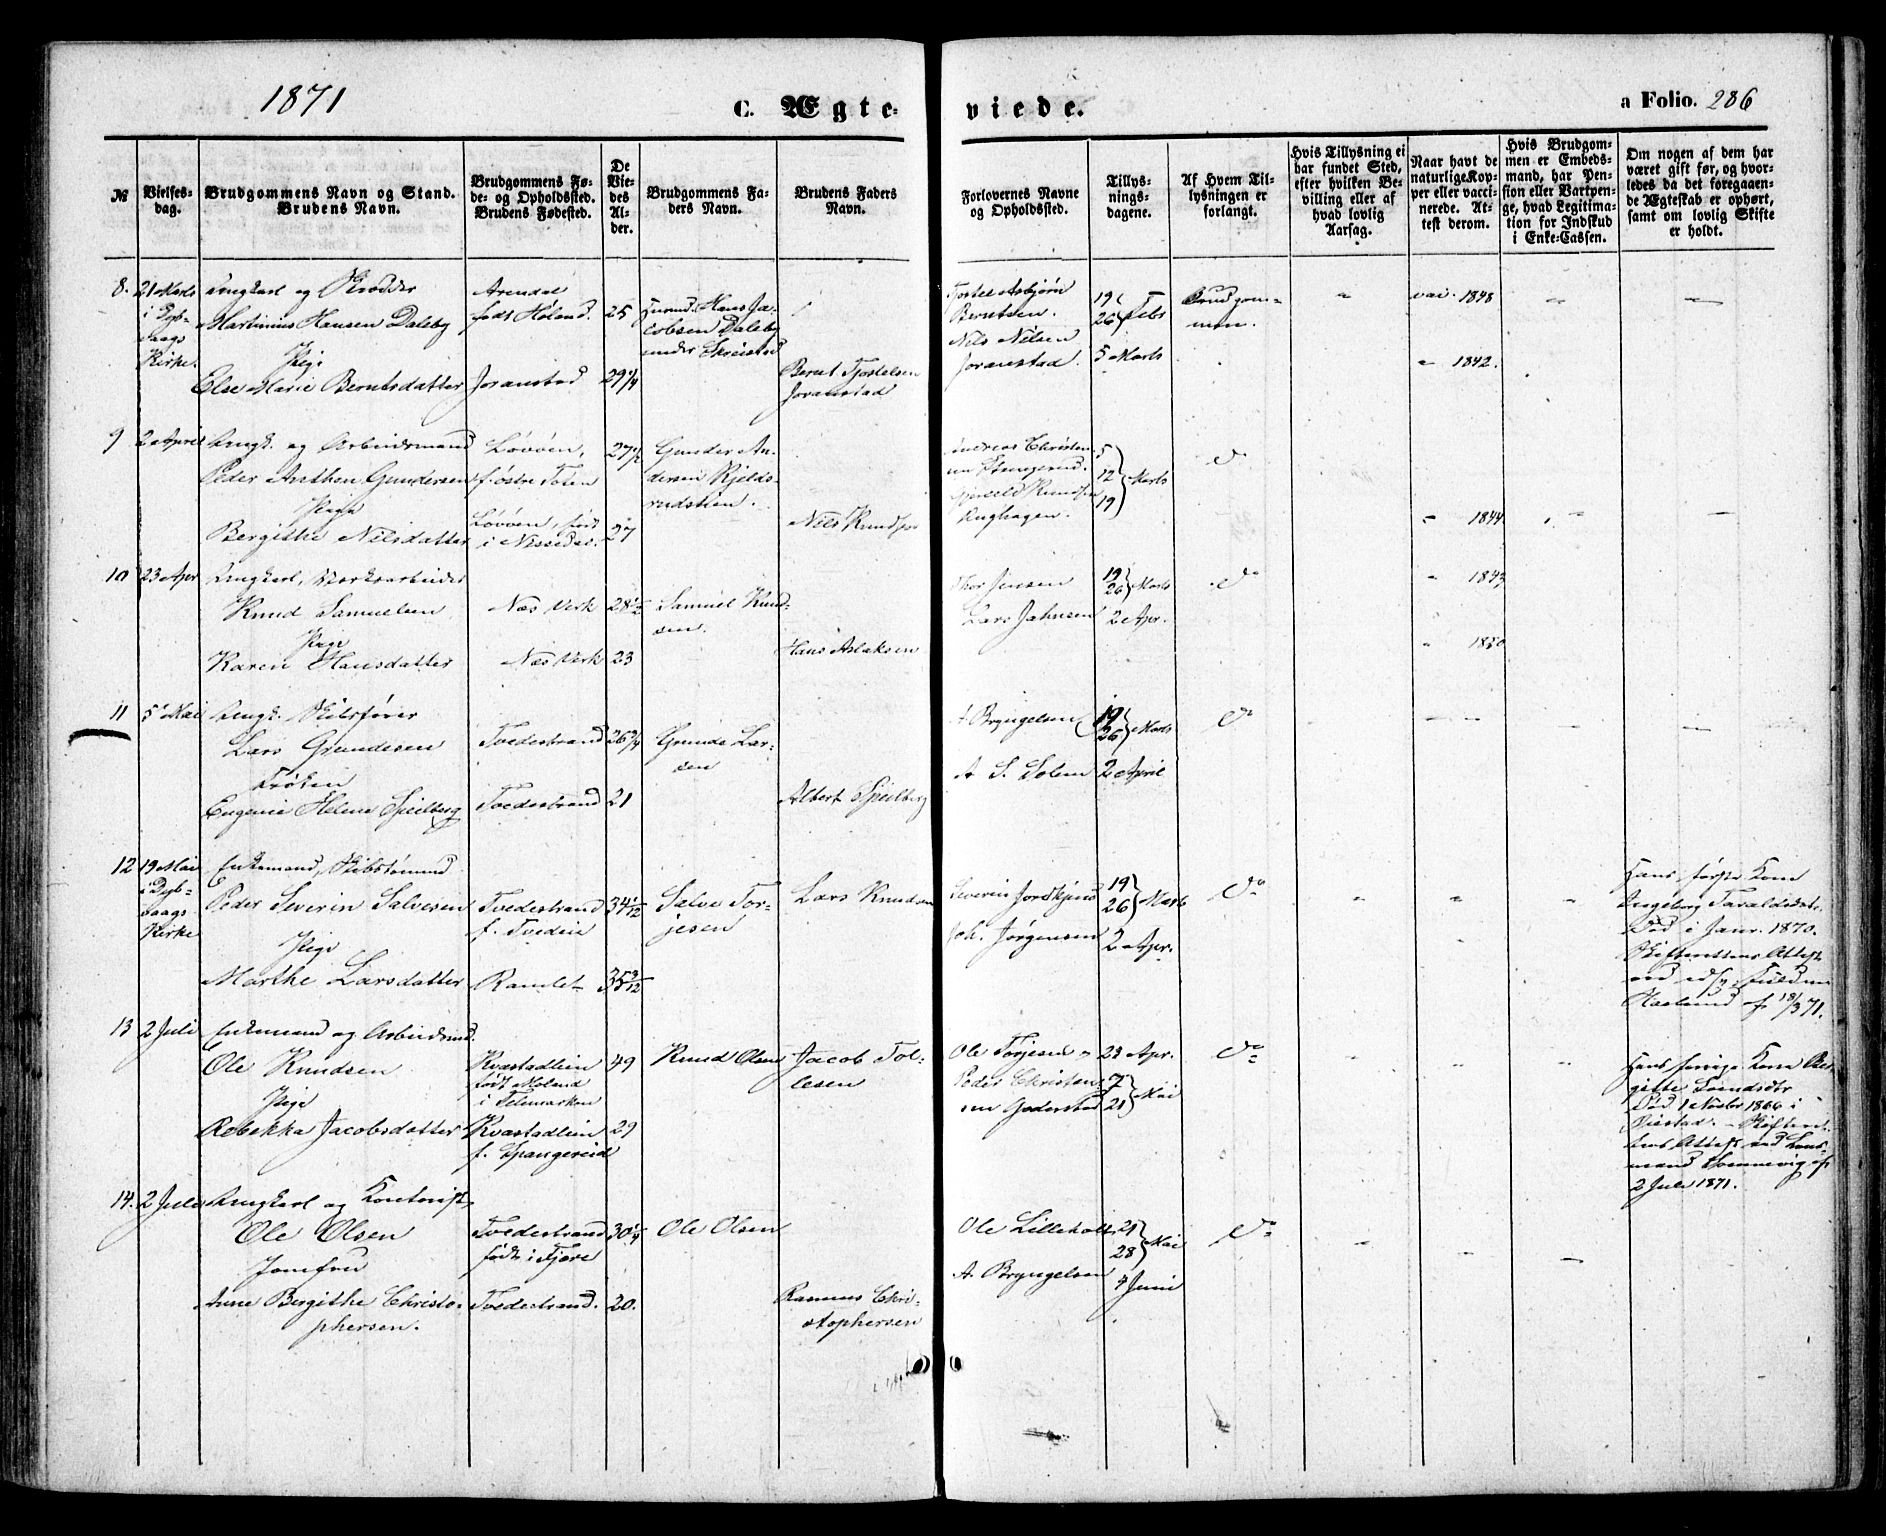 1871
C. Ægte-
viede.
a Folio. 286
№
Vielses-
dag.
Brudgommens Navn og Stand.
Brudens Navn.
Brudgommens Fø-
de- og Opholdssted.
Brudens Fødested.
De
Vie-
des
Al-
der.
Brudgommens Fa-
ders Navn.
Brudens Faders
Navn.
Forlovernes Navne
og Opholdssted.
Tillys-
nings-
dagene.
Af Hvem Til-
lysningen er
forlangt.
Hvis Tillysning ei
har fundet Sted,
efter hvilken Be-
villing eller af
hvad lovlig
Aarsag.
Naar havt de
naturlige Kop-
per eller vacci-
nerede. At-
test derom.
Hvis Brudgom-
men er Embeds-
mand, har Pen-
sion eller Vartpen-
ge, hvad Legitima-
tion for Indskud
i Enke-Cassen.
Om nogen af dem har
været gift før, og hvor-
ledes da det foregaaen-
de Ægteskab er ophørt,
samt om lovlig Skifte
er holdt.
8. 21 Marts
i Dyb-
vaags
Kirke.
Ungkarl og Skrædder
Martinius Hansen Dalsby
Pige
Else Marie Berntsdatter
Arendal
født Høland.
Joranstad
25
29 1/4
Hans Ja-
cobsen Dalsby
under
Bernt Tjostelsen
Joranstad
Tjostel Asbjørn
Berntsen.
Nils Nilsen
Joranstad.
19
26 Febr
5 Marts
Brudgom-
men.
vac. 1848
" 1842.
9 2 April
Ungk. og Arbeidsmand
Peder Anthon Gundersen
Pige
Bergithe Nilsdatter
Løvøen,
f. østre Toten
Løvøen, født
i Nissedal.
27 1/2
27
Gunder An-
dersen Kjelds-
rudstien.
Nils Knudsen
Andreas Christen-
Knudsen
5
12 Marts
19
do
" 1844
10 23 Apr
Ungkarl, Værksarbeider
Knud Samuelsen
Pige
Karen Hansdatter
Næs Verk
Næs Verk
28 1/2
23
Samuel Knud-
sen.
Hans Aslaksen
Thor Jensen
Lars Jahnsen
19
26 Marts
2 Apr.
do
" 1843
" 1850
11 5 Mai
Ungk. Skibsfører
Lars Grundesen
Frøken
Eugenie Helene Speilberg
Tvedestrand
Tvedestrand
26 3/4
21
Grunde Lar-
sen
Albert Speilberg
A. Bryngelsen
A. S. Solem
19
26 Marts
2 April
do
12 19 Mai
i Dyb-
vaags
Kirke
Enkemand, Skibstømmd
Peder Severin Salvesen
Pige
Marthe Larsdatter
Tvedestrand
f. Tvedeie
Ramlet
34 1/12
35 3/12
Salve Tor-
jesen
Lars Knudsen
Severin Jordkjend
Joh. Jørgensen
19
26 Marts
2 Apr.
do
Hans første Kone
Ingeborg Taraldsdat.
Død i Janr. 1870.
Skifterettens Attest
Haslund af 18/3 71.
13 2 Juli
Enkemand og Arbeidsmd.
Ole Knudsen
Pige
Rebekka Jacobsdatter
Kvastadlien
født Moland
i Telemarken
Kvastadlien
f. Spangereid
49
29
Knud Olsen
Jacob Tol-
lesen
Ole Torjesen
Peder Christen-
sen Goderstad
23 Apr.
7
21 Mai
do
Hans forrige Kone Ber-
gitte Svendsdtr
Død 1 Novbr 1866 i
Skiftere-
tens Attest ved Lens-
mand af
2 Juli 1871.
14. 2 Juli
Ungkarl og Kontorist,
Ole Olsen
Jomfru
Anne Bergithe Christo-
phersen.
Tvedestrand
født i Fjære
Tvedestrand.
30 1/4
20.
Ole Olsen
Rasmus Chri-
stophersen
Ole Lilleholt
A. Bryngelsen
21
28 Mai
4 Juni
do